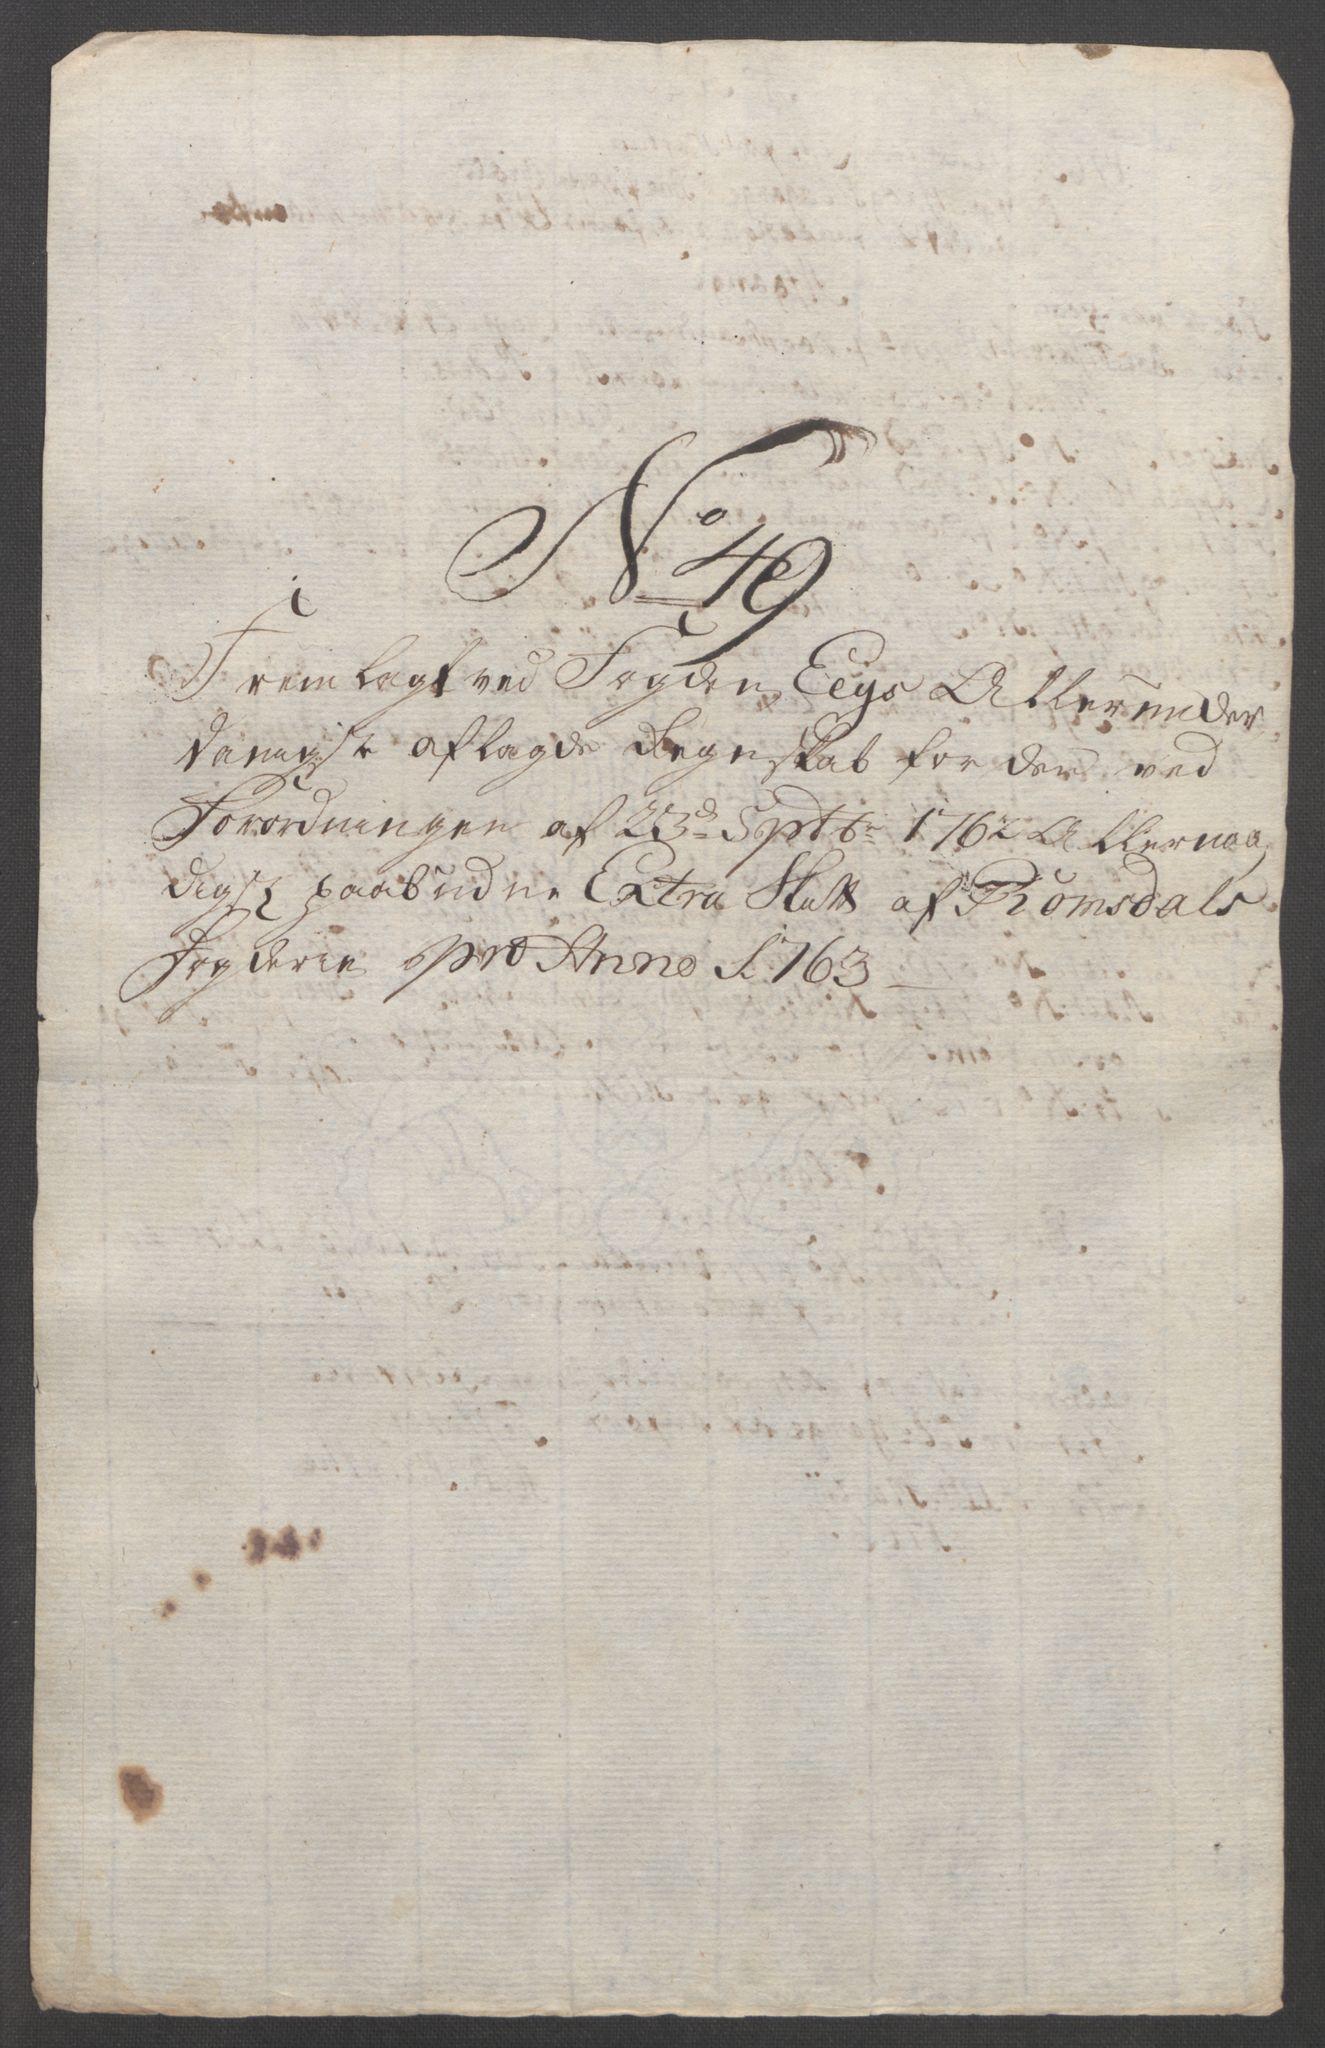 No 49
Fremlagt ved Fogden Eeys Allerunder,
danigste aflagde Regnskab for den ved
Forordningen af 23d Sptbr 1762 Allernaa,
digst paabudne Extra Skatt af Romsdals
Fogderie pro Anno 1763